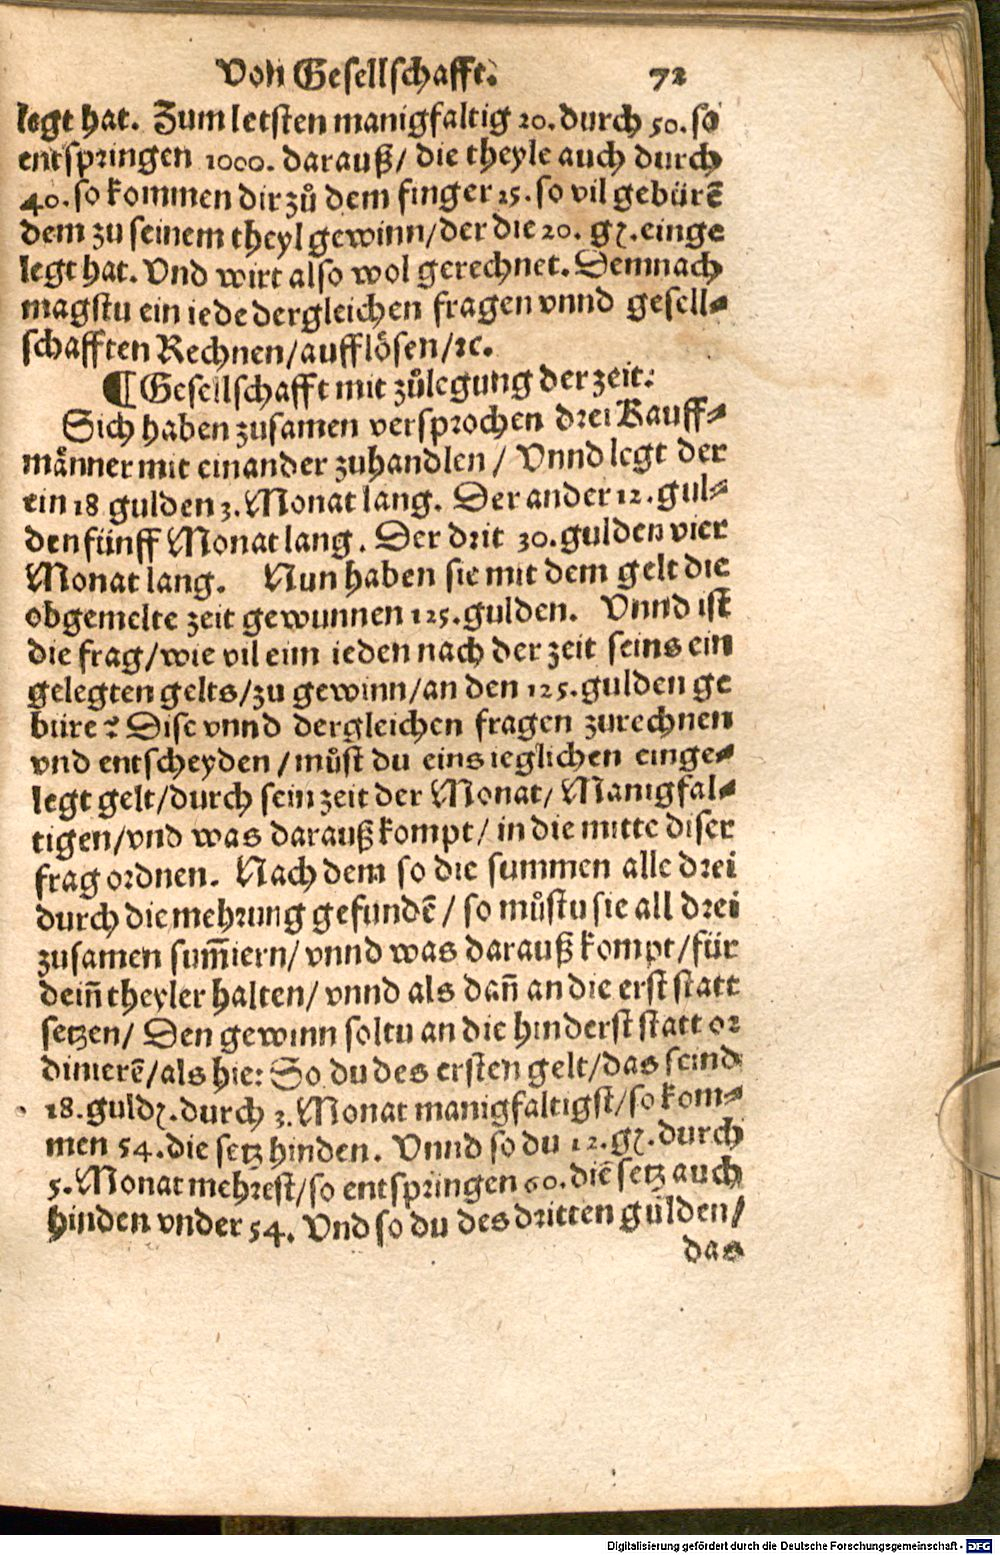 Von Gesellschafft. 72
legt hat. Zum letsten manigfaltig 20. durch 50. so
entspringen 1000. darauß/ die theyle auch durch
40. so kommen dir zů dem finger 25. so vil gebürẽ
dem zu seinem theyl gewinn/ der die 20. gꝛ. einge
legt hat. Vnd wirt also wol gerechnet. Demnach
magstu ein iede dergleichen fragen vnnd gesell⸗
schafften Rechnen/ aufflösen/ ꝛc.
¶ Gesellschafft mit zůlegung der zeit.
Sich haben zusamen versprochen drei Kauff⸗
männer mit einander zuhandlen/ Vnnd legt der
ein 18 gulden 3. Monat lang. Der ander 12. gul⸗
den fünff Monat lang. Der drit 30. gulden vier
Monat lang. Nun haben sie mit dem gelt die
obgemelte zeit gewunnen 125. gulden. Vnnd ist
die frag/ wie vil eim ieden nach der zeit seins ein
gelegten gelts/ zu gewinn/ an den 125. gulden ge
büre? Dise vnnd dergleichen fragen zurechnen
vnd entscheyden/ můst du eins ieglichen einge⸗
legt gelt/ durch sein zeit der Monat/ Manigfal⸗
tigen/ vnd was darauß kompt/ in die mitte diser
frag ordnen. Nach dem so die summen alle drei
durch die mehrung gefundẽ/ so můstu sie all drei
zusamen sum̃iern/ vnnd was darauß kompt/ für
dein̄ theyler halten/ vnnd als dan̄ an die erst statt
setzen/ Den gewinn soltu an die hinderst statt or
dinierẽ/ als hie: So du des ersten gelt/ das seind
18. guldꝛ. durch 3. Monat manigfaltigst/ so kom⸗
men 54. die setz hinden. Vnnd so du 12. gꝛ. durch
5. Monat mehrest/ so entspringen 60. die setz auch
hinden vnder 54. Vnd so du des dritten gülden/
das
Digitalisierung gefördert durch die Deutsche Forschungsgemeinschaft - DFG